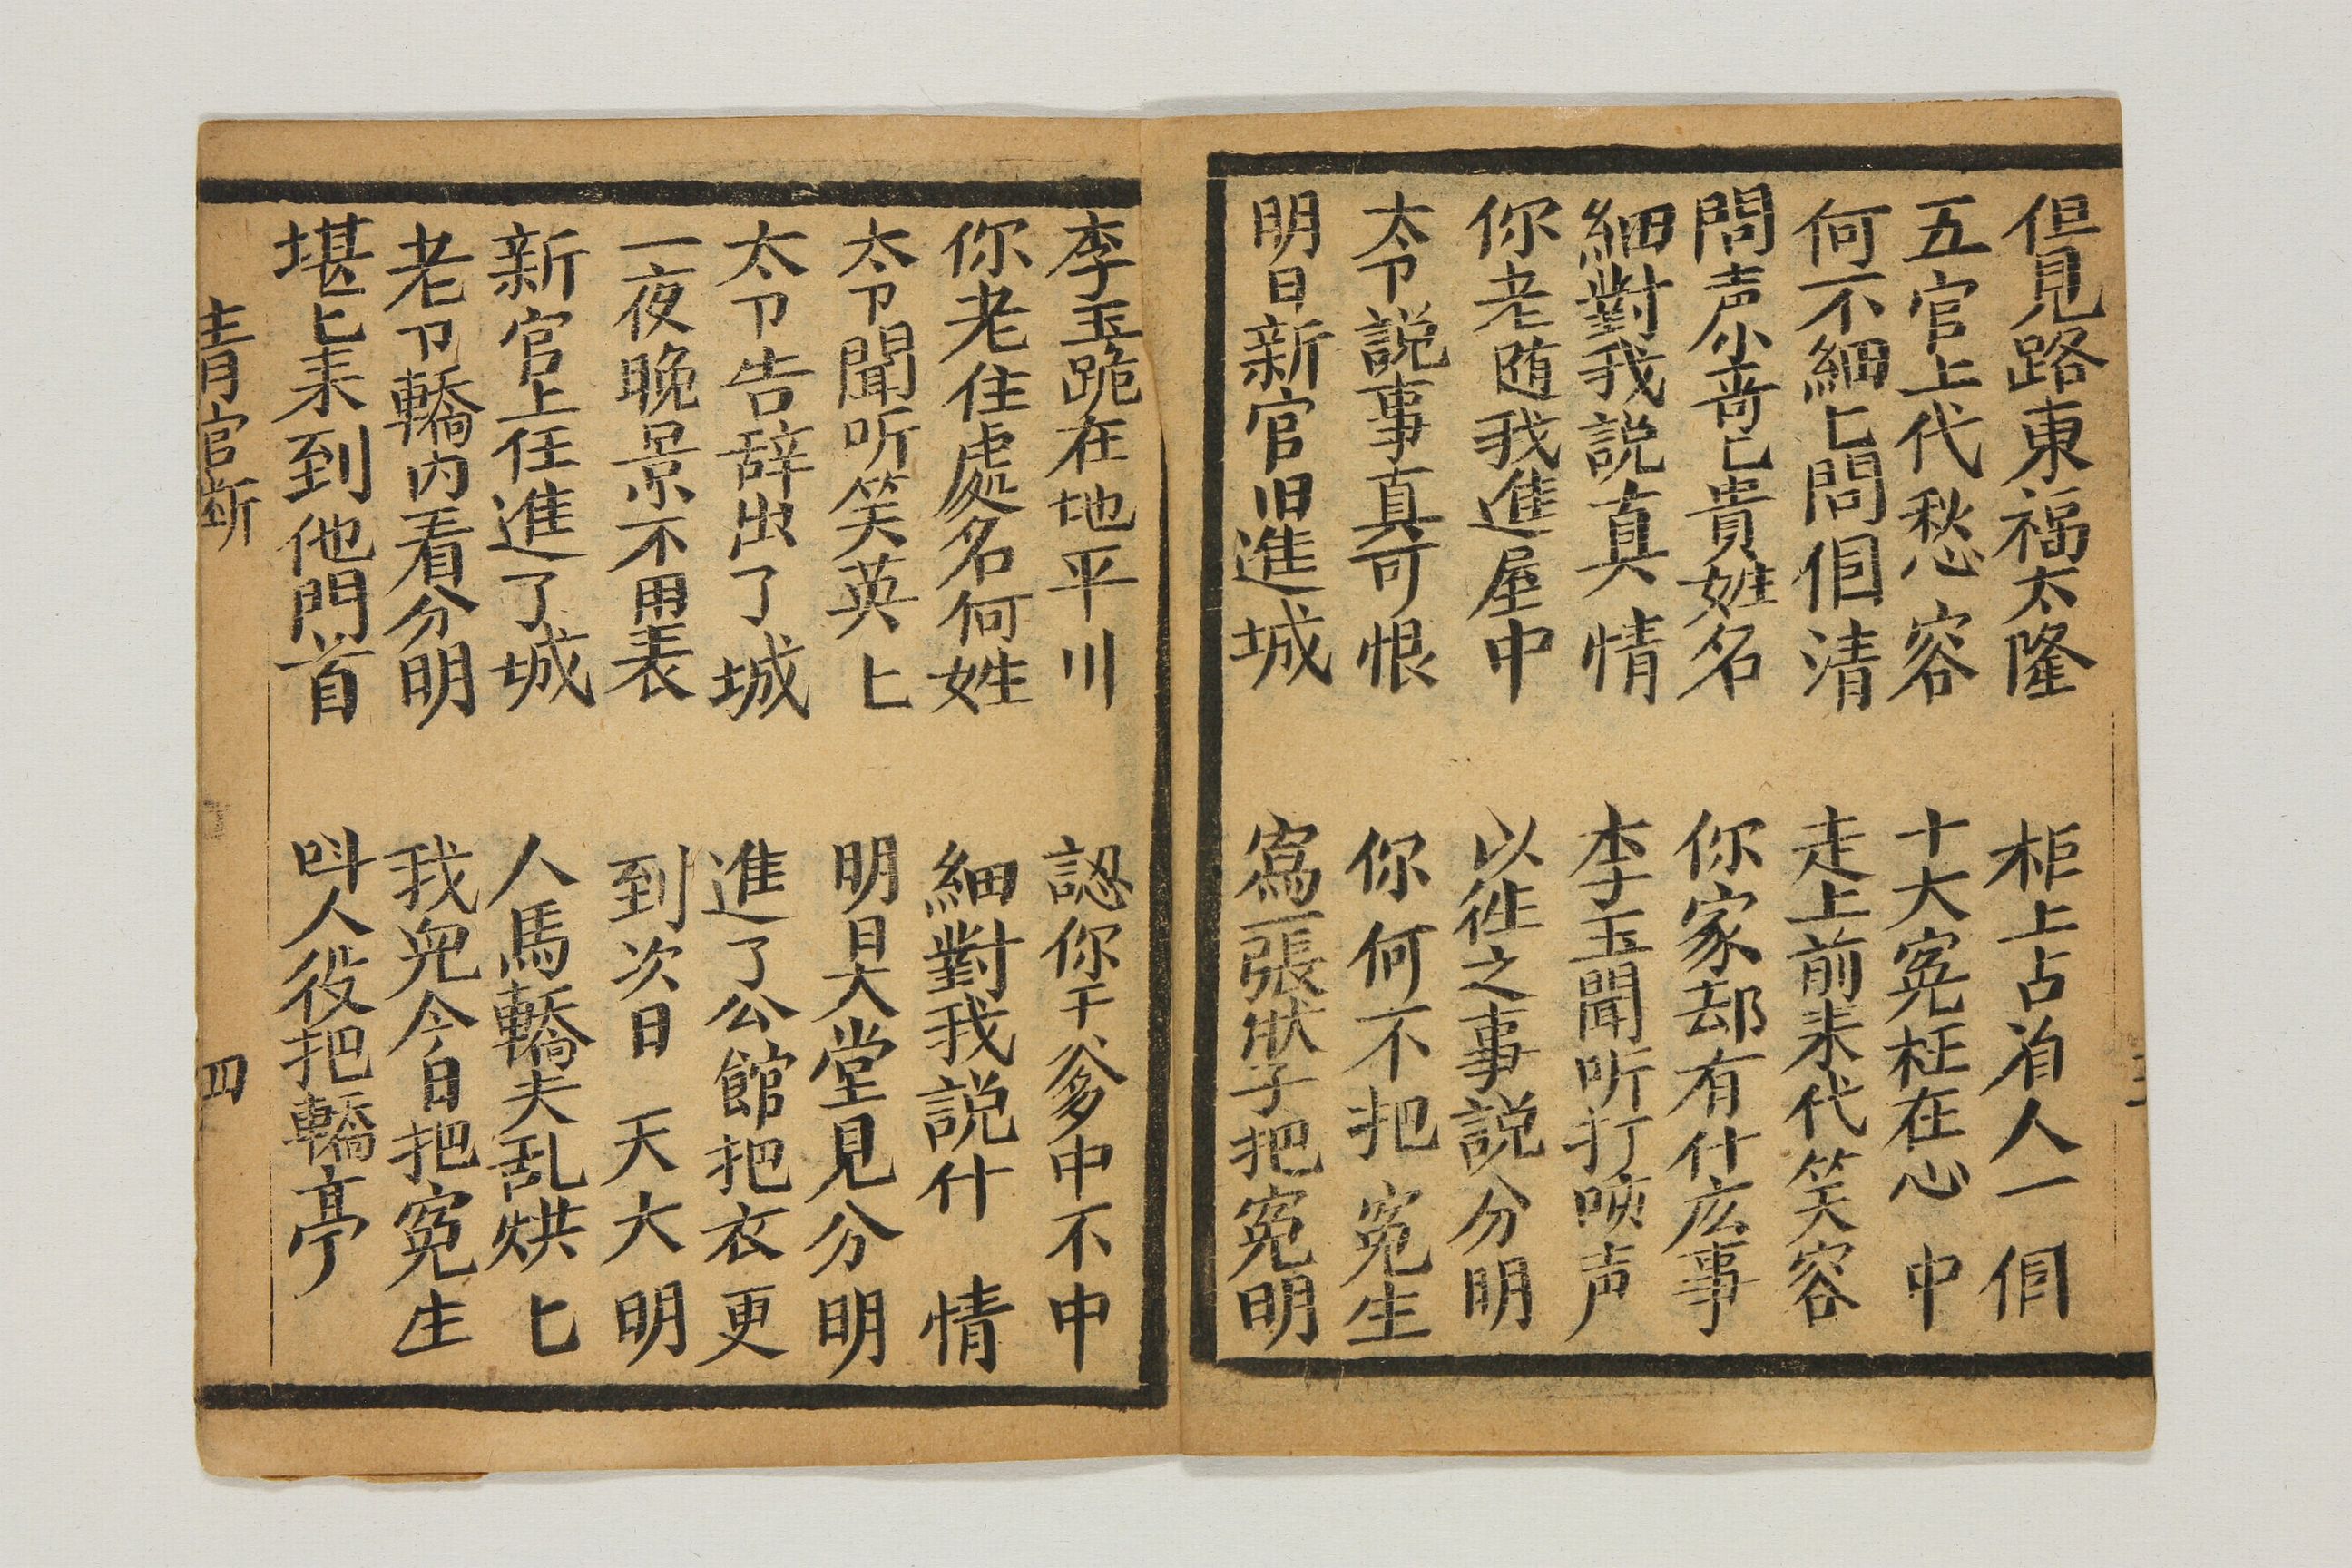 但見路東福太隆 柜上占着人一個
五官上代愁容 十大寃枉在心中
何不細匕問個清 走上前来代笑容
問声小哥匕貴姓名 你家却有什広事
細對我説真情 李玉聞听打唉声
你老随我進屋中 以徃之事説分明
太令説事真可恨 你何不把寃生
明日新官旧進城 寫一張狀子把寃明
李玉跪在地平川 認你干爹中不中
你老住處名何姓 細對我説什情
太令聞听笑英匕 明日大堂見分明
太令告辞出了城 進了公館把衣更
一夜晚景不用表 到次日天大明
新官上任進了城 人馬轎夫乱烘匕
老令轎内看分明 我兒今日把寃生
堪匕来到他門首 叫人役把轎亭
青官断 四